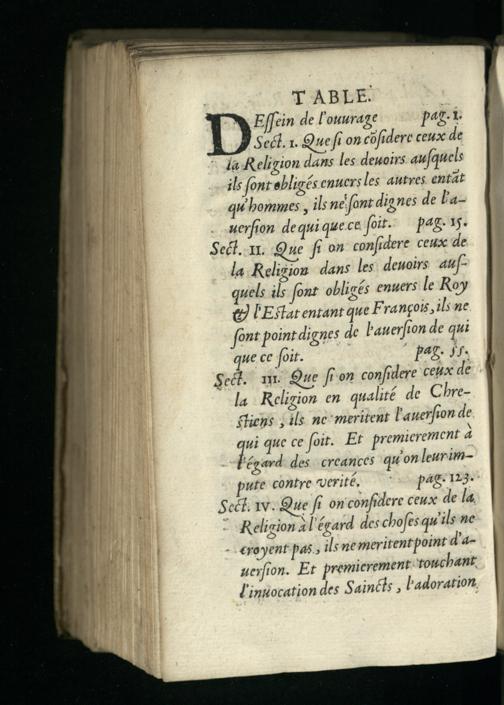 TABLE.
DEssein de l'ouurage pag. 1.
Sect. I. Que si on cõsidere ceux de
la Religion dans les deuoirs ausquels
ils sont obligés enuers les autres entãt
qu'hommes, ils ne sont dignes de l'a-
uersion de qui que ce soit. pag. 15.
Sect. II. Que si on considere ceux de
la Religion dans les deuoirs aus-
quels ils sont obligés enuers le Roy
& l'Estat entant que François, ils ne
sont point dignes de l'auersion de qui
que ce soit. pag. 55.
Sect. III. Que si on considere ceux de
la Religion en qualité de Chre-
stiens, ils ne meritent l'auersion de
qui que ce soit. Et premierement à
l'égard des creances qu'on leur im-
pute contre verité. pag. 123.
Sect. IV. Que si on considere ceux de la
Religion à l'égard des choses qu'ils ne
croyent pas, ils ne meritent point d'a-
uersion. Et premierement touchant
l'inuocation des Saincts, l'adoration